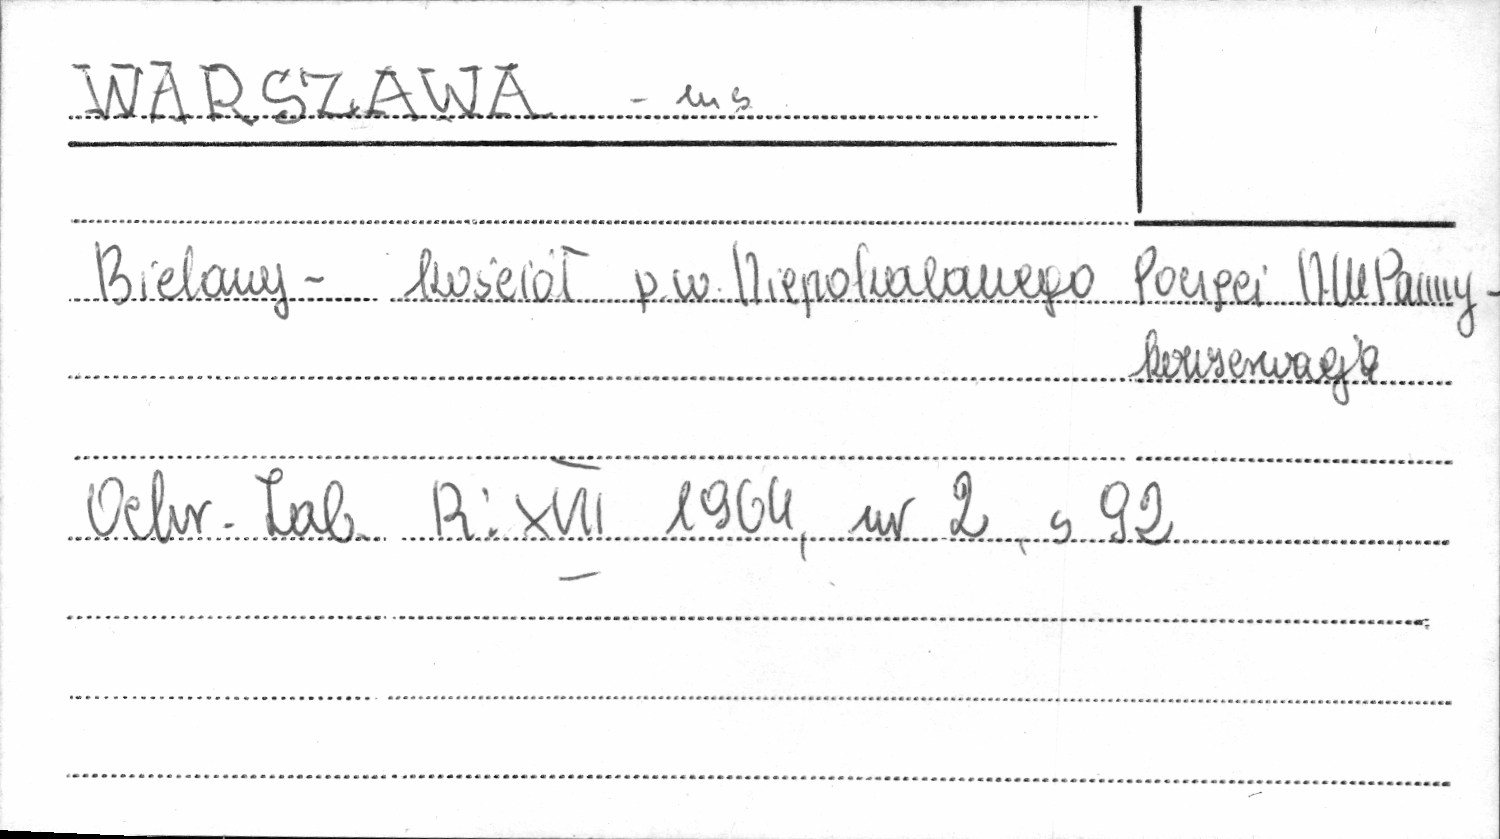 WARSZAWA - m s
Bielany - kościół p.w. Niepokalanego Poczęci N.M Panny -
konserwacja
Ochr. Zab. R: XVII 1964, nr 2, s 92